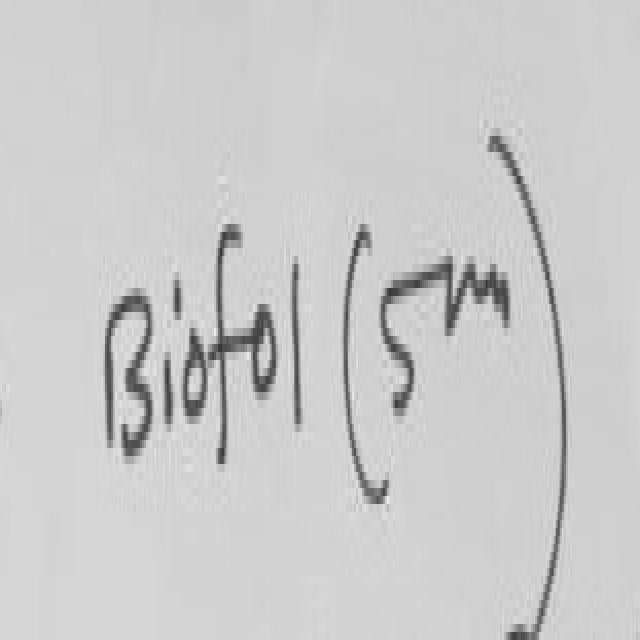 Biofol (5m)